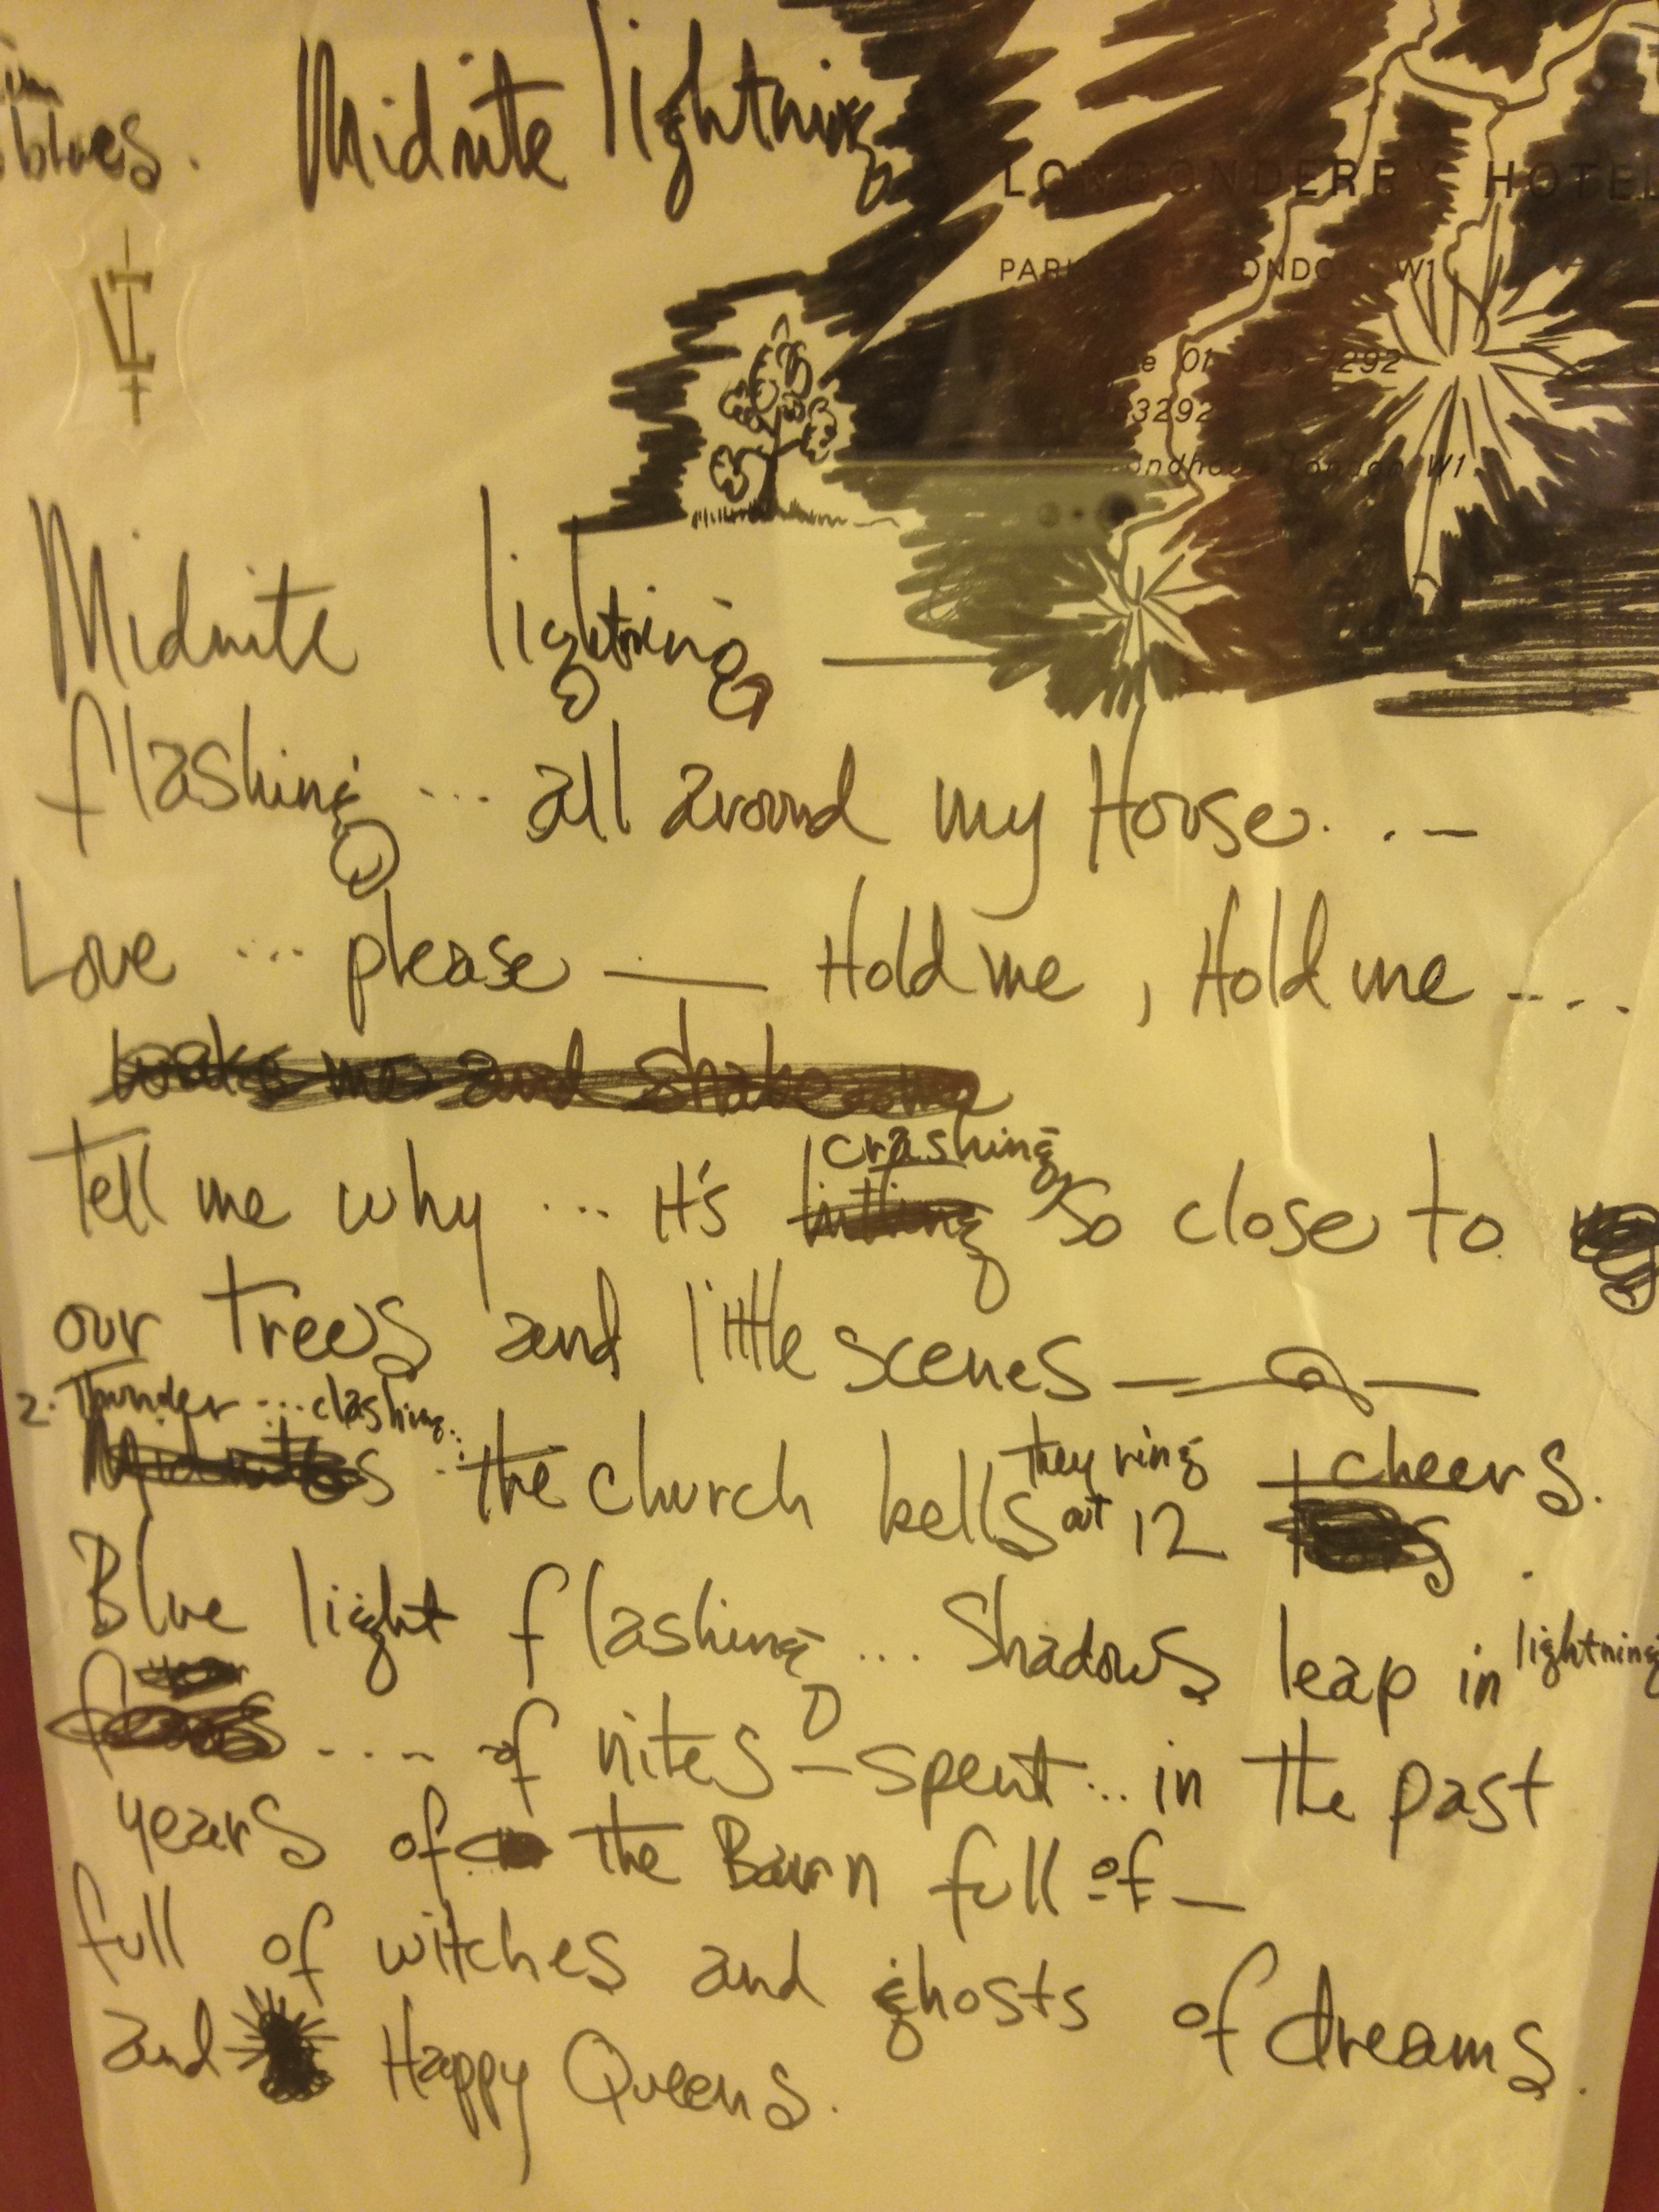 blues. Midnite lightning
LONDONDERRY HOTEL
PARK LONDON W1
01 493 7292
3292
London W1
Midnite lightning —
flashing ... all around my House. . . —
Love ... please — Hold me, Hold me ....
wake me and shake me
crashing
Tell me why ... it's hitting so close to
our trees and little scenes —
2. Thunder ... clashing..
they ring cheers.
Midnites the church bells at 12
Blue light flashing ... Shadows leap in lightning
.... of nites - spent .. in the past
years of the Barn full of —
full of witches and ghosts of dreams.
and Happy Queens.